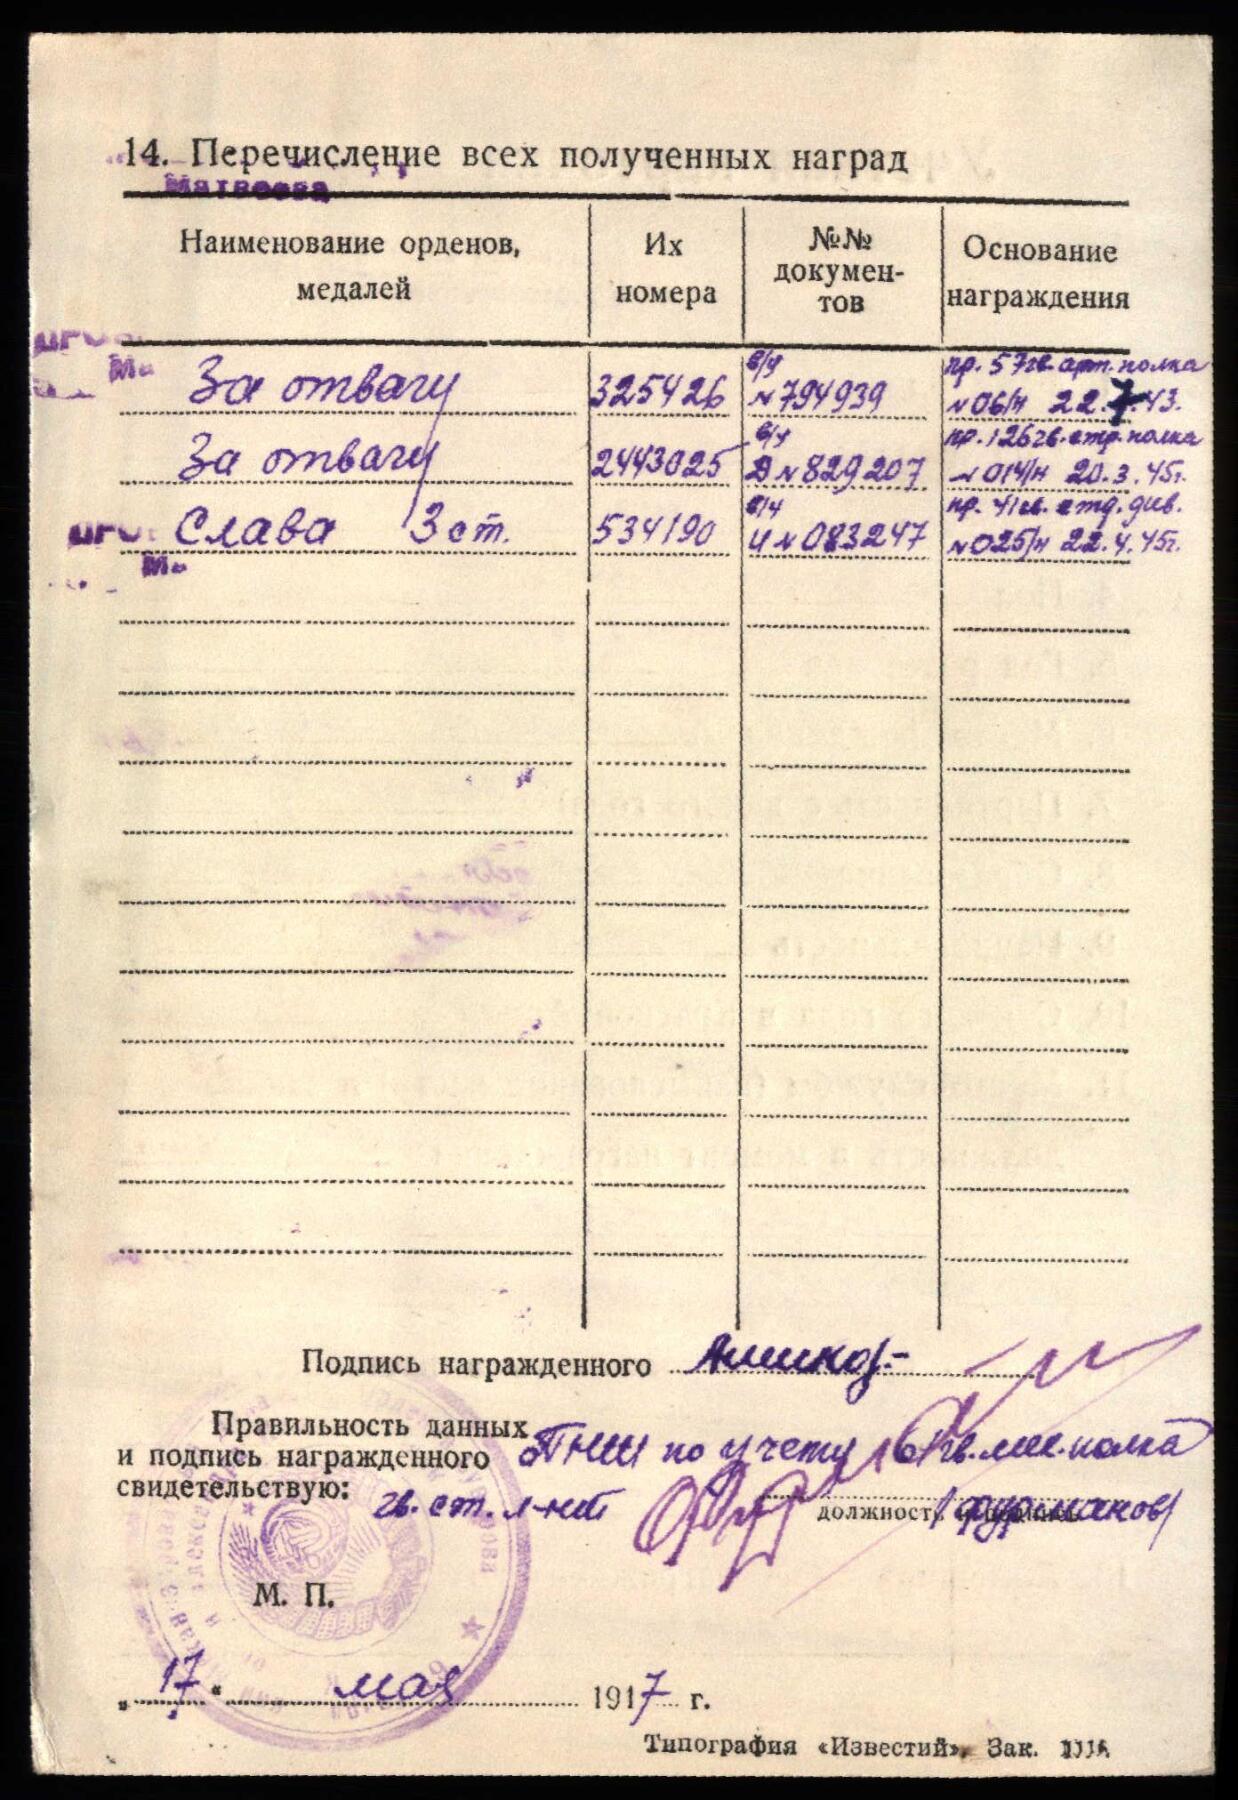 14. Перечисление всех полученных наград
Матвеева
Наименование орденов, медалей
Их номера
№№ докумен-
тов
Основание награждения
За отвагу 325426 в/у № 794939 пр. 57 гв. арт. полка № 06/н 22.7.43.
За отвагу 2443025 в/у Д № 829207 пр. 126 гв. стр. полка № 014/н 20.3.45г.
Слава 3 ст. 534190 в/у И № 083247 пр. 41 гв. стр. див. № 025/н 22.4.45г.
Подпись награжденного
Правильность данных
и подпись награжденного
свидетельствую:
ПНШ по учету гв. мех. полка
гв. ст. л-нт
должность и подпись
/Фурманов/
М. П.
„17“ мая 1917 г.
Типография «Известий». Зак.